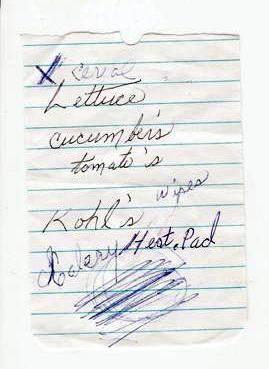 X ceral
Lettuce
cucumber's
tomato's
wipes
Kohl's
Calery Heat.Pad